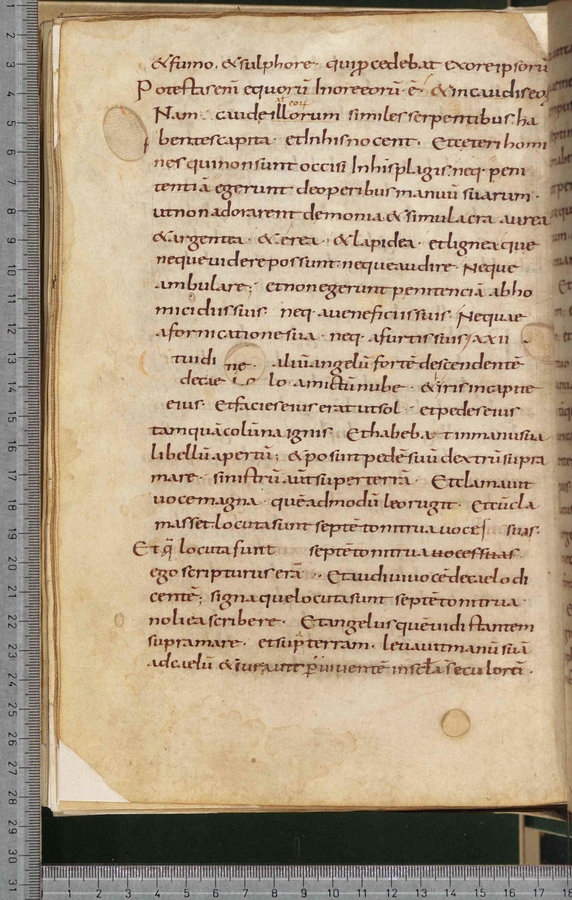 & fumo . & sulphore . qui p̱cedebat ex ore ipsorū
Potestas enī equorū In ore eorū . ē . & in caudis eoꝝ
Nam . caude illorum similes serpentibus . ha
bentes capita . et In his nocent . Et ceteri homi
nes qui non sunt occisi In his plagis . neq . peni
tentiā egerunt de operibus manuū suarum .
ut non adorarent demonia & simulacra aurea
& argentea . & erea . & lapidea . et lignea que
neque videre possunt neque audire Neque
ambulare ; et non egerunt penitenciā ab ho
micidiis suis neq . a veneficiis suis Nequae
a fornicatione sua . neq . a furtis suis ; xx ii
t vidi ne . aliū angelū fortē descendentē
de cae lo . amictū nube . & iris in capite
eius . Et facies eius erat ut sol . et pedes eius
tamquā colūna ignis . Et habebat in manu sua
libellū apertū ; & posuit pedē suū dextrū supra
mare . sinistrū aūt super terrā . Et clamavit
voce magna . quēadmodū leo rugit . Et cū cla
masset locuta sunt septē tonitrua voces suas .
Et q̄ locuta sunt septē tonitrua voces suas .
ego scripturus erā . Et audivi vocē de caelo di
centē ; signa que locuta sunt septē tonitrua .
noli ea scribere . Et angelus quē vidi stantem
supra mare . et sup̱ terram . levavit manū suā
ad caelū & iuravit p̱ viventē in scła seculorū .